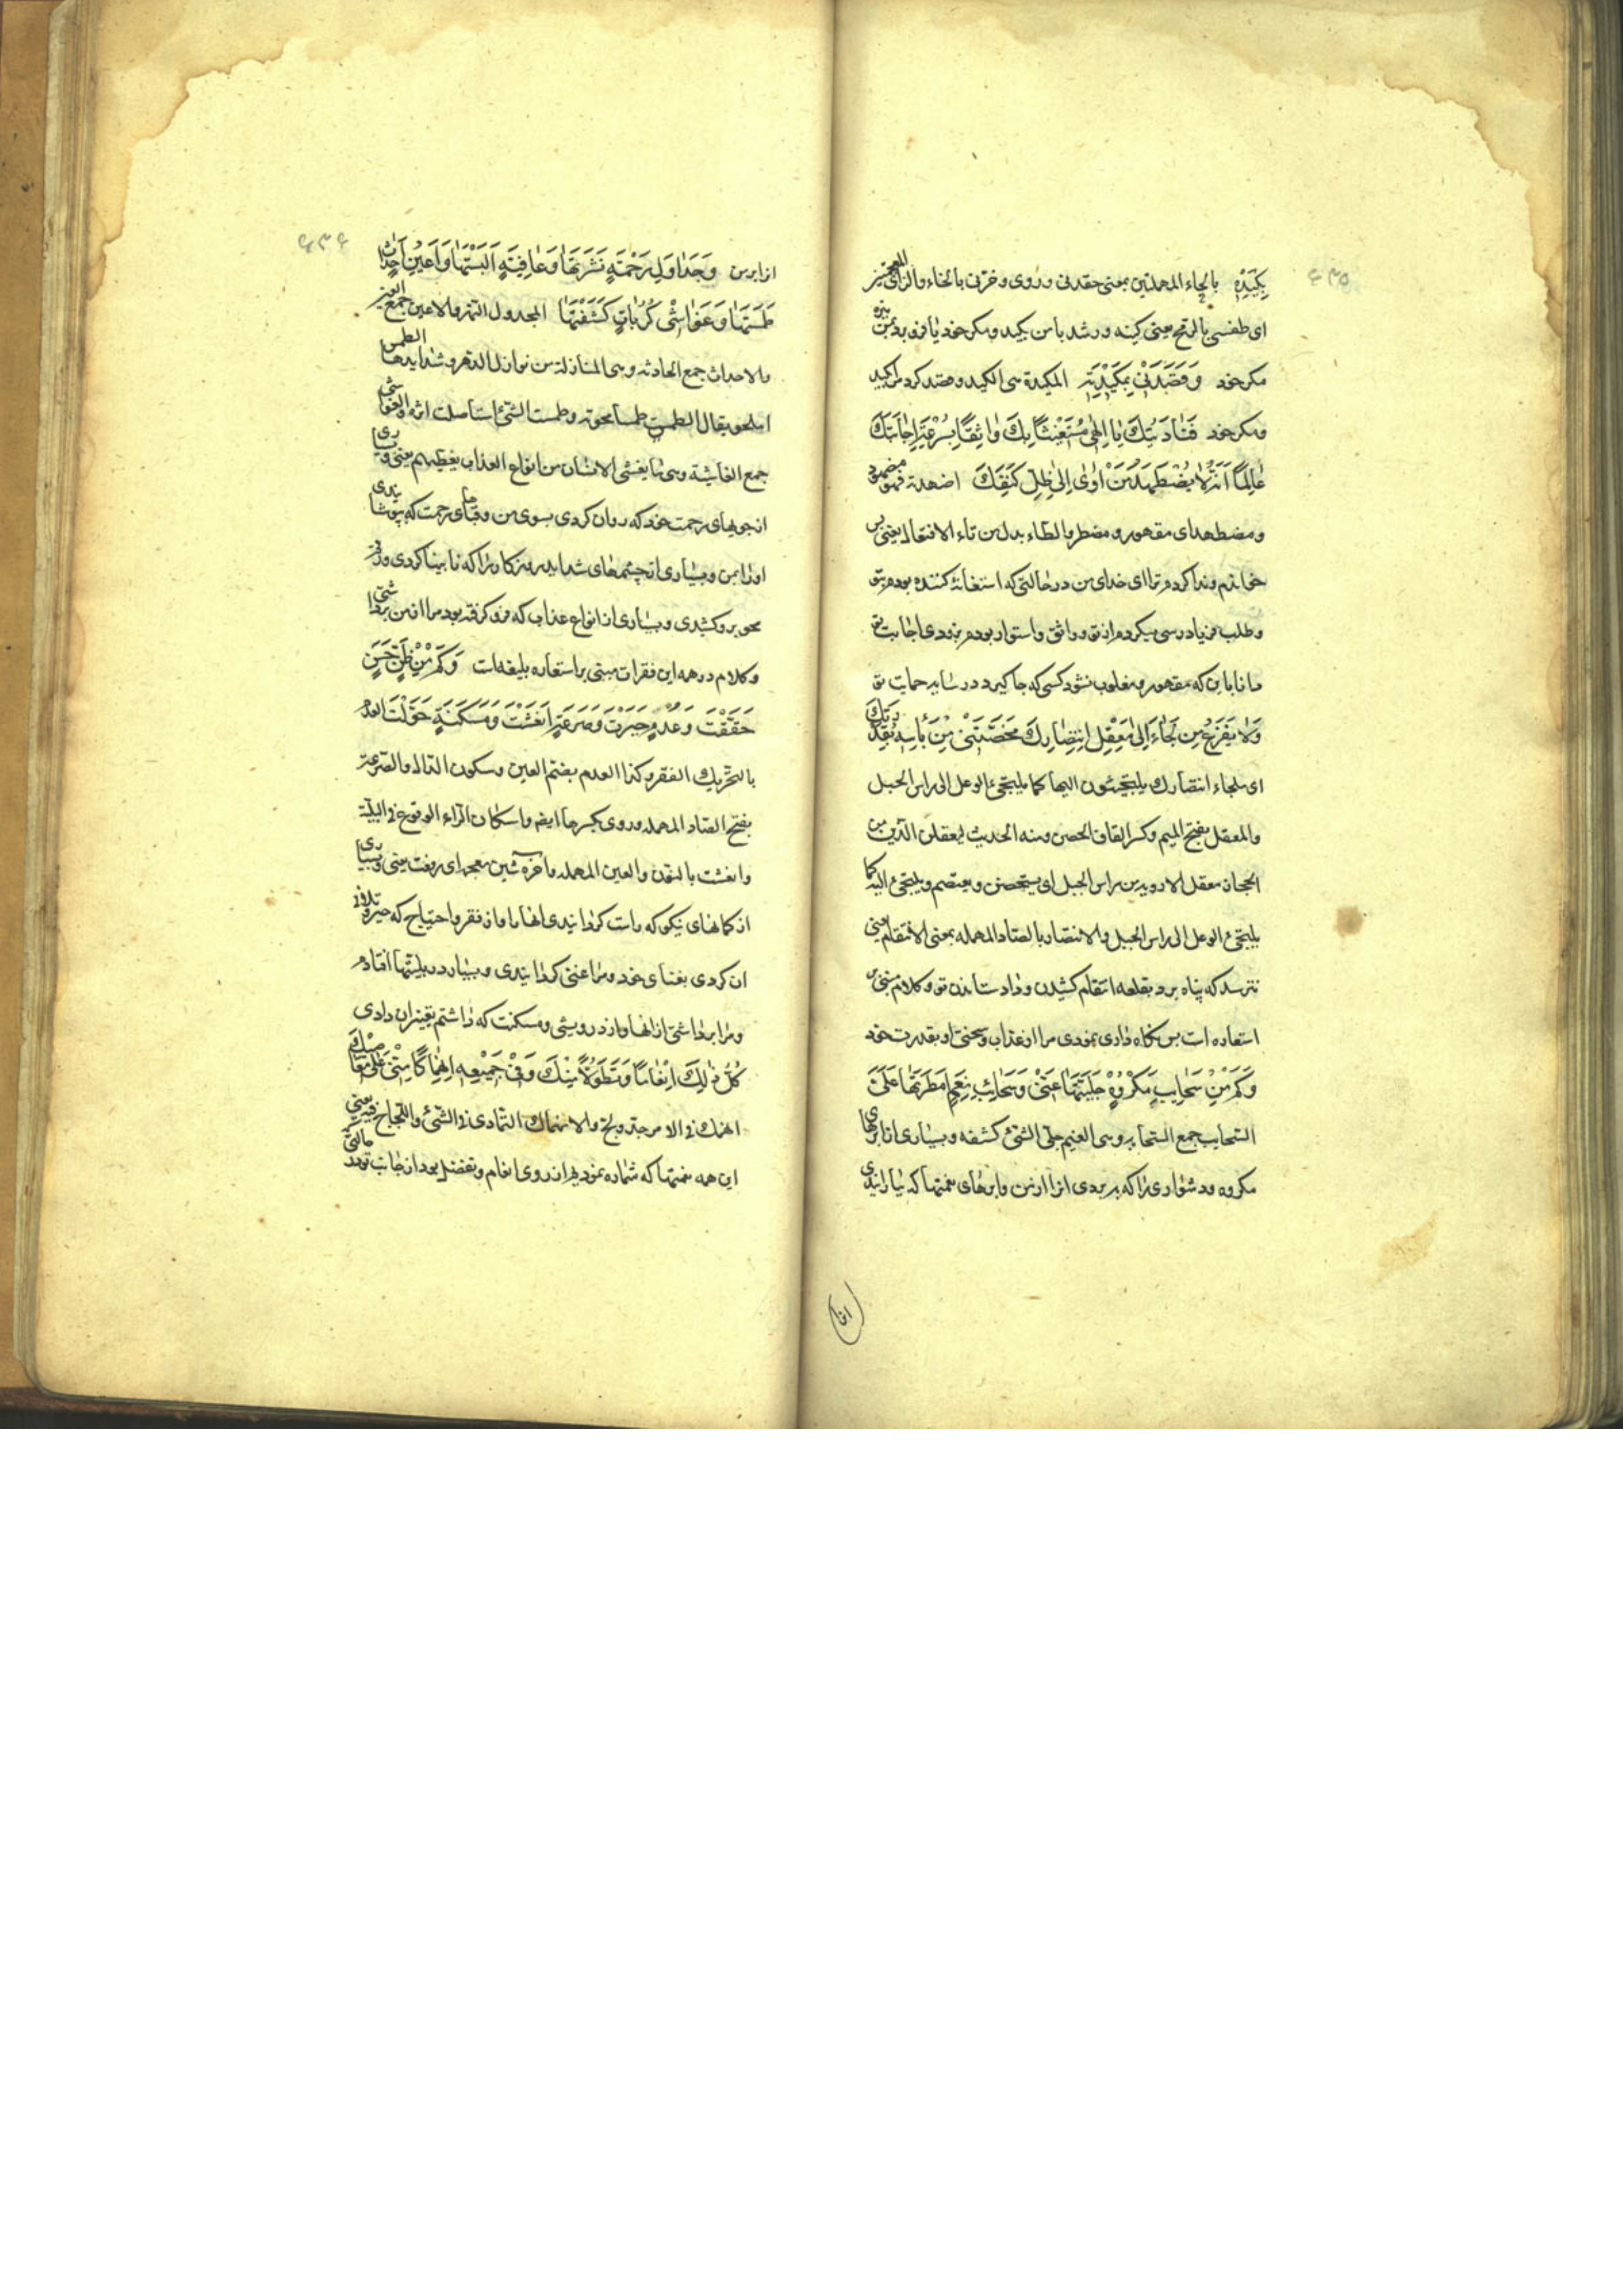 ۶۳۵
بِكَيْدِهِ بالحاء المهملتين بمعنی حقدنی وروی وخزنی بالخاء والزای المعجمتین
ای طعننی بالرمح یعنی کینه ورشد با من بکید ومکر خود یا فرو برد بمن نیزه
مکر خود وَقَصَدَنِی بِمَكِیْدَتِهِ المکیدة هی الکید وقصد کرد مرا بکید
ومکر خود فَنَادَیْتُكَ یٰا اِلٰهِی مُسْتَغِیْثًا بِكَ وٰاثِقًا بِسُرْعَةِ اِجٰابَتِكَ
عٰالِمًا اَنَّهُ لٰا یُضْطَهَدُ مَنْ اَوٰی اِلٰی ظِلِّ كَنَفِكَ اضهدته فهو مضهود
ومضطهد ای مقهور ومضطر والطاء بدل من تاء الافتعال یعنی پس
خواندم وندا کردم ترا ای خدای من در حالتی که استغاثه کننده بودم بتو
وطلب فریادرسی میکردم از تو وواثق واستوار بودم بزودی اجابت تو
دانا باین که مقهور ومغلوب نشود کسی که جا گیرد در سایه حمایت تو
وَلٰا یَفْزَعُ مَنْ لَجٰاءَ اِلٰی مَعْقِلِ انْتِصٰارِكَ فَحَصَّنْتَنِی مِنْ بَأْسِهِ بِقُدْرَتِكَ
ای ملجاء انتصارك یلتجئون الیها کما یلتجیء الوعل الی راس الجبل
والمعقل بفتح المیم وکسر القاف الحصن ومنه الحدیث لیعقلن الدین من
الحجاز معقل الارویه من راس الجبل ای یتحصن ویعتصم ویلتجیء الیه کما
یلتجیء الوعل الی راس الجبل والانتصار بالصاد المهمله بمعنی الانتقام یعنی
نترسد که پناه برد بقلعه انتقام کشیدن وداد ستاندن تو وکلام مبنی بر
استعاره است پس نگاه داری نمودی مرا از عذاب وسختی او بقدرت خود
وَكَمْ مِنْ سَحٰایِبِ مَكْرُوْهٍ جَلَّیْتَهٰا عَنِّیْ وَسَحٰائِبِ نِعَمٍ اَمْطَرْتَهٰا عَلَیَّ
السحایب جمع السحابه وهی الغیم جلی الشیء کشفه وبسیاری از ابرهای
مکروه ودشواری را که ببردی انرا از من وابرهای نعمتها که بٰارانیدی
انرا بر من وَجَدٰاوِلِ رَحْمَةٍ نَشَرْتَهٰا وَعٰافِیَةٍ اَلْبَسْتَهٰا وَاَعْیُنِ اَحْدٰاثٍ
طَمَسْتَهٰا وَغَوٰاشِی كُرُبٰاتٍ كَشَفْتَهٰا الجدول النهر والاعین جمع العین
والاحداث جمع الحادثه وهی النازلة من نوازل الدهر وشدایدها الطمس
المحو یقال الطمس طمسا محوته وطمست الشیء استاصلت اثره والغواشی
جمع الغاشیة وهی ما یغشی الانسان من انواع العذاب یغطیهم یعنی وبسیاری
از جویهای رحمت خود که روان کردی بسوی من وقباهای رحمت که پوشانیدی
محو بر وکشیدی وبسیاری از انواع عذاب که فرو گرفته بود مرا از من برداشتی
وکلام در همه این فقرات مبتنی بر استعاره بلیغه است وَكَمْ مِنْ ظَنٍّ حَسَنٍ
حَقَّقْتَ وَعُدْمٍ جَبَرْتَ وَصَرْعَةٍ اَنْعَشْتَ وَمَسْكَنَةٍ حَوَّلْتَ العدم
بالتحریك الفقر وکذا العدم بضم العین وسکون الدال والصرعة
بفتح الصاد المهمله وروی بکسرها ایضا واسکان الراء الوقوع فی البلیة
وانعشت بالنون والعین المهمله واخره شین معجمه ای رفعت یعنی وبسیاری
از گمانهای نیکو که راست گردانیدی انها را واز فقر واحتیاج که جبر وتلافی
ان کردی بغنای خود ومرا غنی گردانیدی وبسیار در بلیتها افتادم
ومرا برداشتی از انها واز درویشی ومسکنت که داشتم تغییر ان دادی
كُلُّ ذٰلِكَ اِنْعٰامًا وَتَطَوُّلًا مِنْكَ وَفِیْ جَمِیْعِهِ اِنْهِمٰاكًا مِنِّیْ عَلٰی مَعٰاصِیْكَ
انهمك فی الامر جد ولج والانهماك التمادی فی الشیء واللجاج فیه یعنی
این همه نعمتها که شماره نمودیم از روی انعام وتفضل بود از جانب تو در حالتی که
۶۳۶